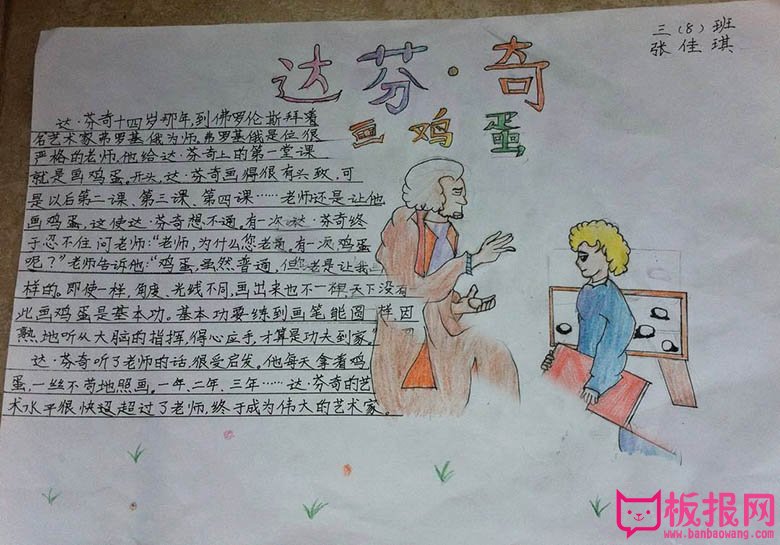 三(8)班
张佳琪
达芬·奇
画鸡蛋
达·芬奇十四岁那年,到佛罗伦斯拜着
名艺术家弗罗基俄为师。弗罗基俄是位很
严格的老师,他给达·芬奇上的第一堂课
就是画鸡蛋。开头,达·芬奇画得很有兴致,可
是以后第二课、第三课、第四课……老师还是让他
画鸡蛋,这使达·芬奇想不通,有一次,达·芬奇终
于忍不住问老师:“老师,为什么您老是。有一次鸡蛋
呢?”老师告诉他:“鸡蛋,虽然普通,但您老是让我
样的。即使一样,角度、光线不同,画出来也不一样,天下没有
此画鸡蛋是基本功。基本功要练到画笔能圆样因
熟地听从大脑的指挥,得心应手,才算是功夫到家。”
达·芬奇听了老师的话,很受启发。他每天拿着鸡
蛋,一丝不苟地照画。一年、二年、三年……达·芬奇的艺
术水平很快迢超过了老师,终于成为伟大的艺术家。
板报网
www.banbaowang.com